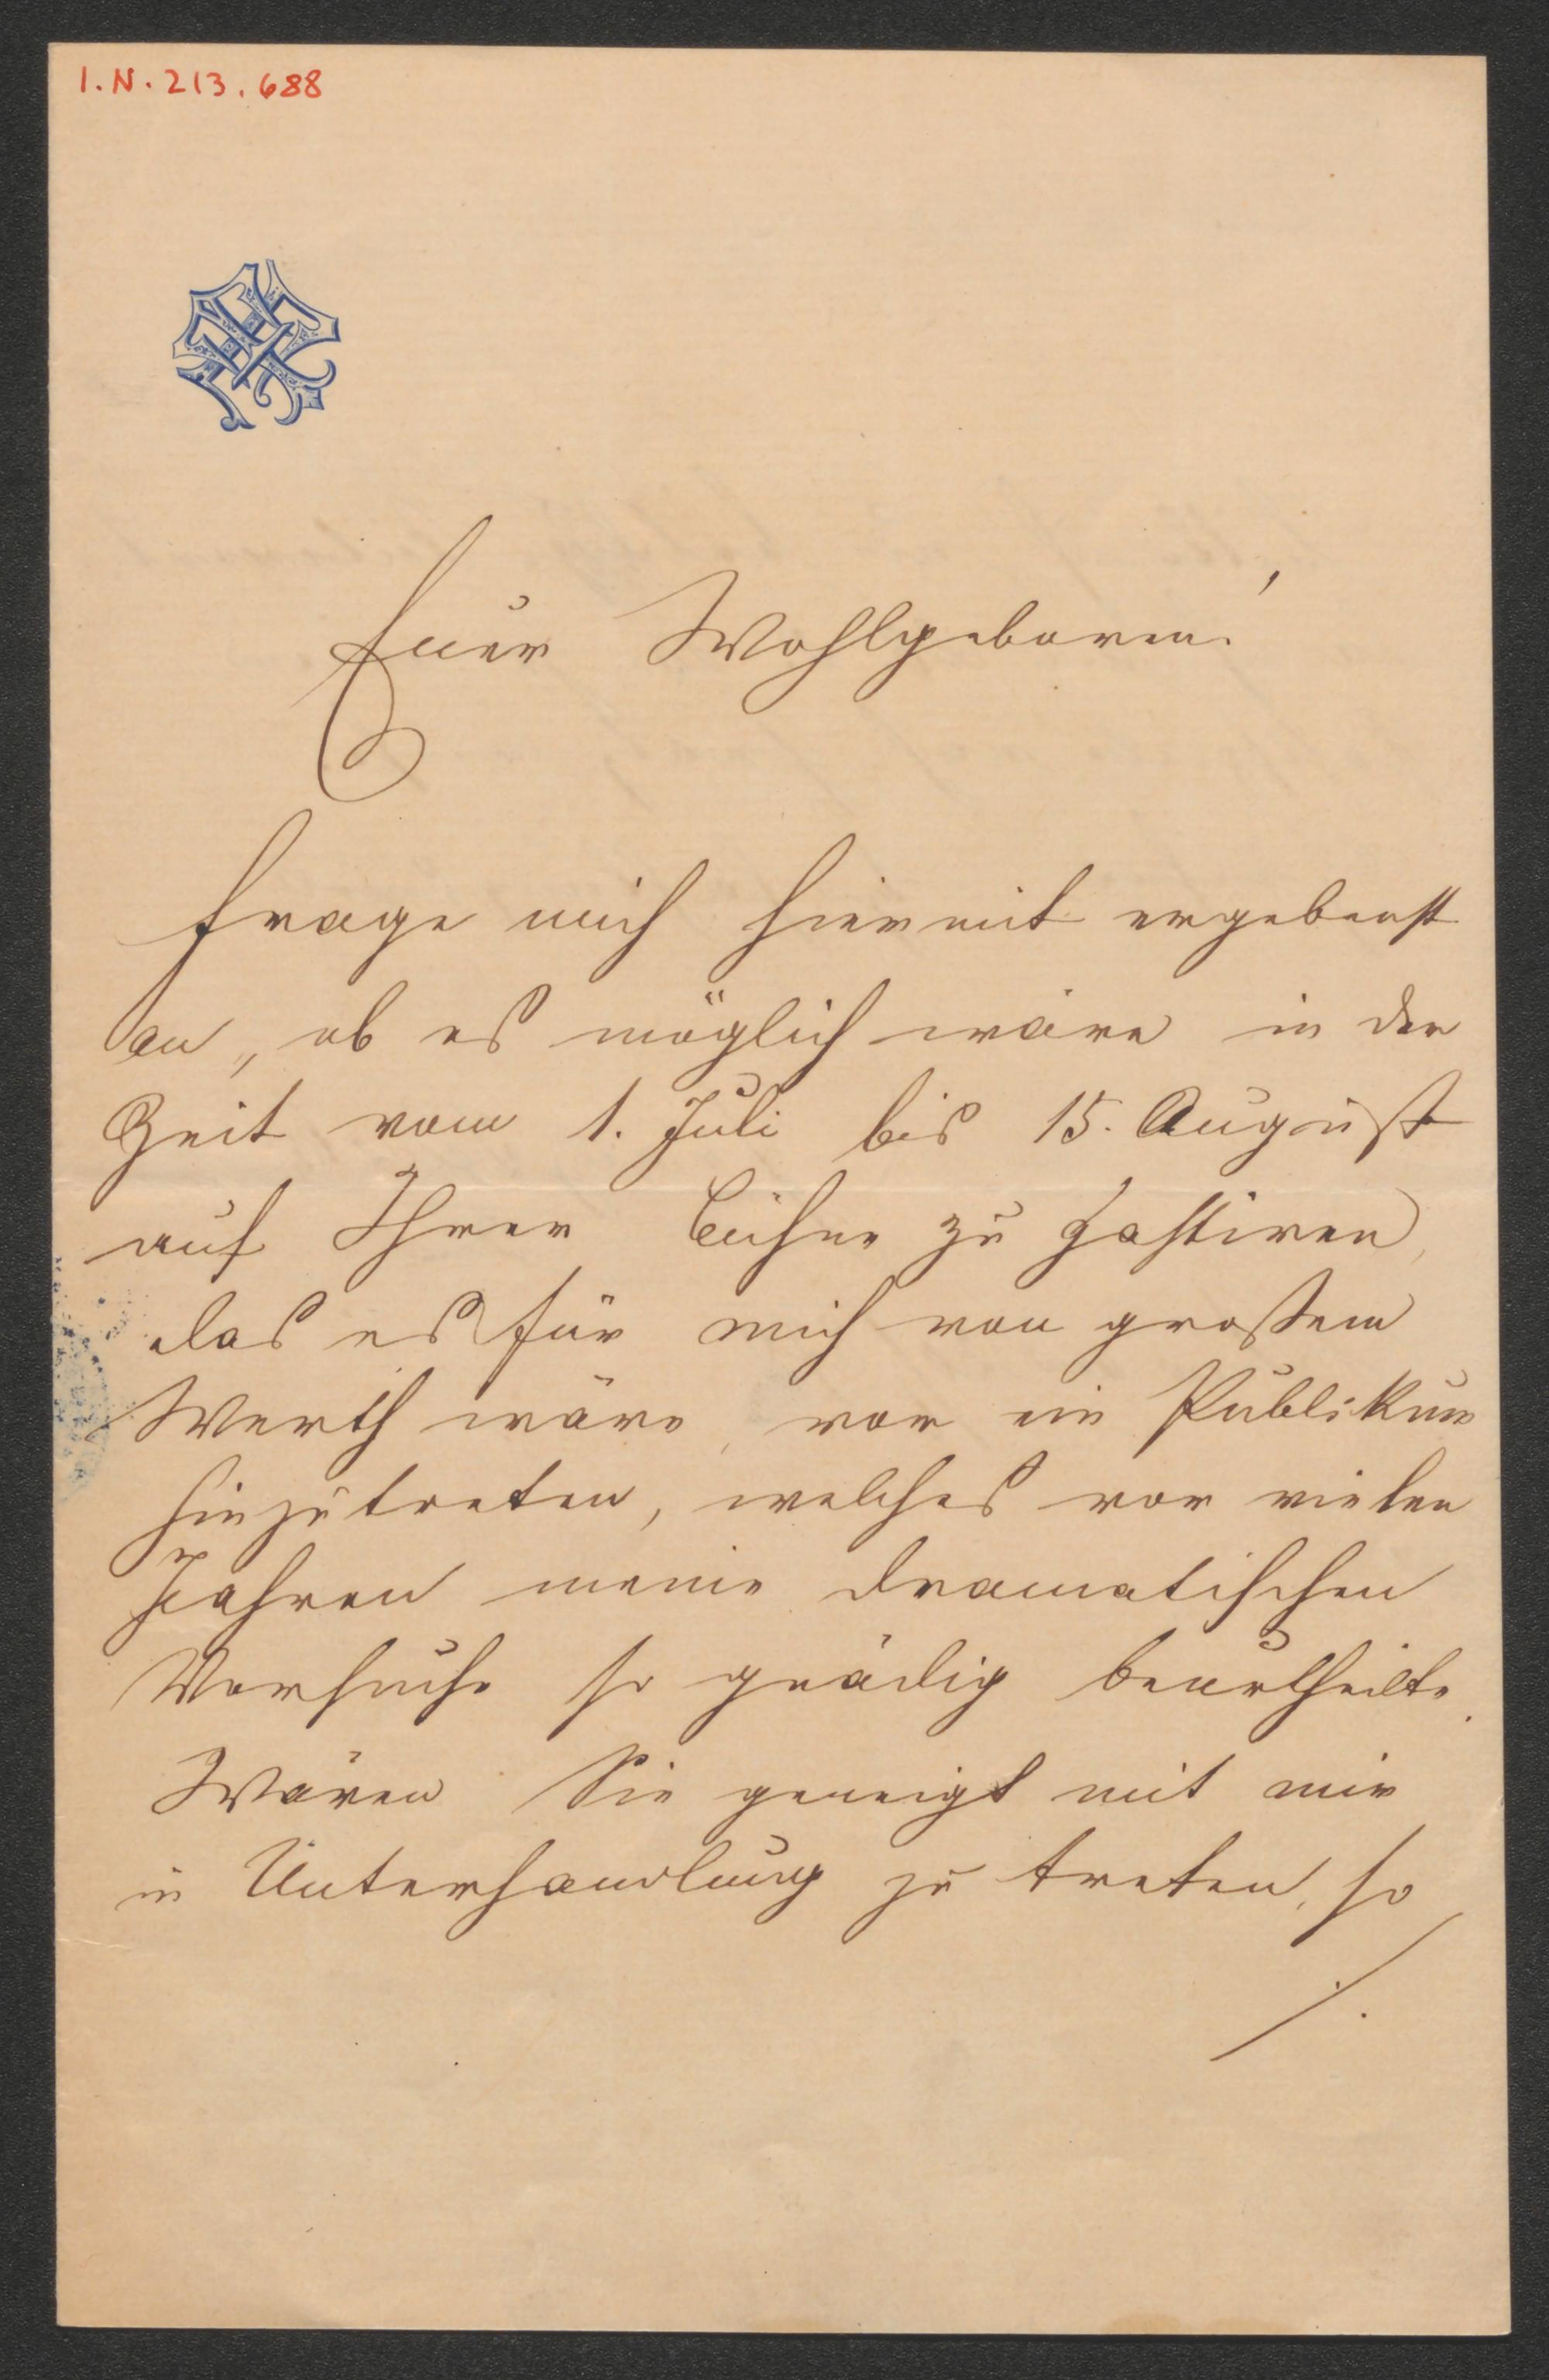 I.N. 213.688
Euer Wohlgeboren!
Frage mich hiermit ergebenst
an, ob es möglich wäre in der
Zeit vom 1. Juli bis 15. August
auf Ihrer Bühne zu gastiren,
das es für mich von großem
Werth wäre, vor ein Publikum
hinzutreten, welches vor vielen
Jahren meine dramatischen
Versuche so gnädig beurtheilte.
Wären Sie geneigt mit mir
in Unterhandlung zu treten, so
./.